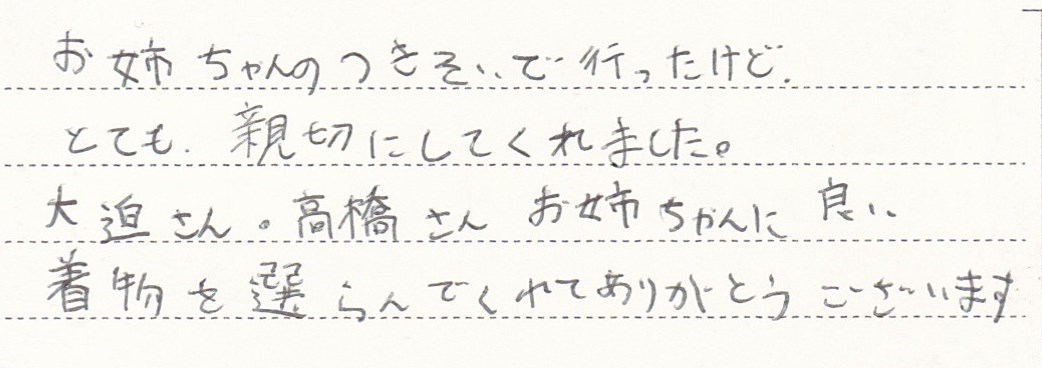 お姉ちゃんのつきそいで行ったけど、
とても、親切にしてくれました。
大迫さん。高橋さん お姉ちゃんに 良い
着物を選らんでくれてありがとうございます